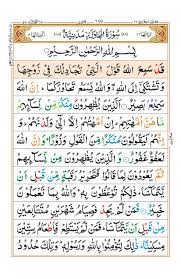 سُوْرَةُ الْمُجَادَلَةِ مَدَنِيَّةٌ
بِسْمِ اللهِ الرَّحْمٰنِ الرَّحِيْمِ
قَدْ سَمِعَ اللهُ قَوْلَ الَّتِيْ تُجَادِلُكَ فِيْ زَوْجِهَا
وَتَشْتَكِيْٓ اِلَى اللهِ وَاللهُ يَسْمَعُ تَحَاوُرَكُمَا اِنَّ
اللهَ سَمِيْعٌۢ بَصِيْرٌ اَلَّذِيْنَ يُظٰهِرُوْنَ مِنْكُمْ مِّنْ نِّسَآئِهِمْ
مَّا هُنَّ اُمَّهٰتِهِمْ اِنْ اُمَّهٰتُهُمْ اِلَّا الّٰٓـِٔيْ وَلَدْنَهُمْ وَاِنَّهُمْ
لَيَقُوْلُوْنَ مُنْكَرًا مِّنَ الْقَوْلِ وَزُوْرًا وَاِنَّ اللهَ لَعَفُوٌّ
غَفُوْرٌ وَالَّذِيْنَ يُظٰهِرُوْنَ مِنْ نِّسَآئِهِمْ
ثُمَّ يَعُوْدُوْنَ لِمَا قَالُوْا فَتَحْرِيْرُ رَقَبَةٍ مِّنْ قَبْلِ اَنْ
يَّتَمَآسَّا ذٰلِكُمْ تُوْعَظُوْنَ بِهٖ وَاللهُ بِمَا تَعْمَلُوْنَ
خَبِيْرٌ فَمَنْ لَّمْ يَجِدْ فَصِيَامُ شَهْرَيْنِ مُتَتَابِعَيْنِ
مِنْ قَبْلِ اَنْ يَّتَمَآسَّا فَمَنْ لَّمْ يَسْتَطِعْ فَاِطْعَامُ سِتِّيْنَ
مِسْكِيْنًا ذٰلِكَ لِتُؤْمِنُوْا بِاللهِ وَرَسُوْلِهٖ وَتِلْكَ حُدُوْدُ